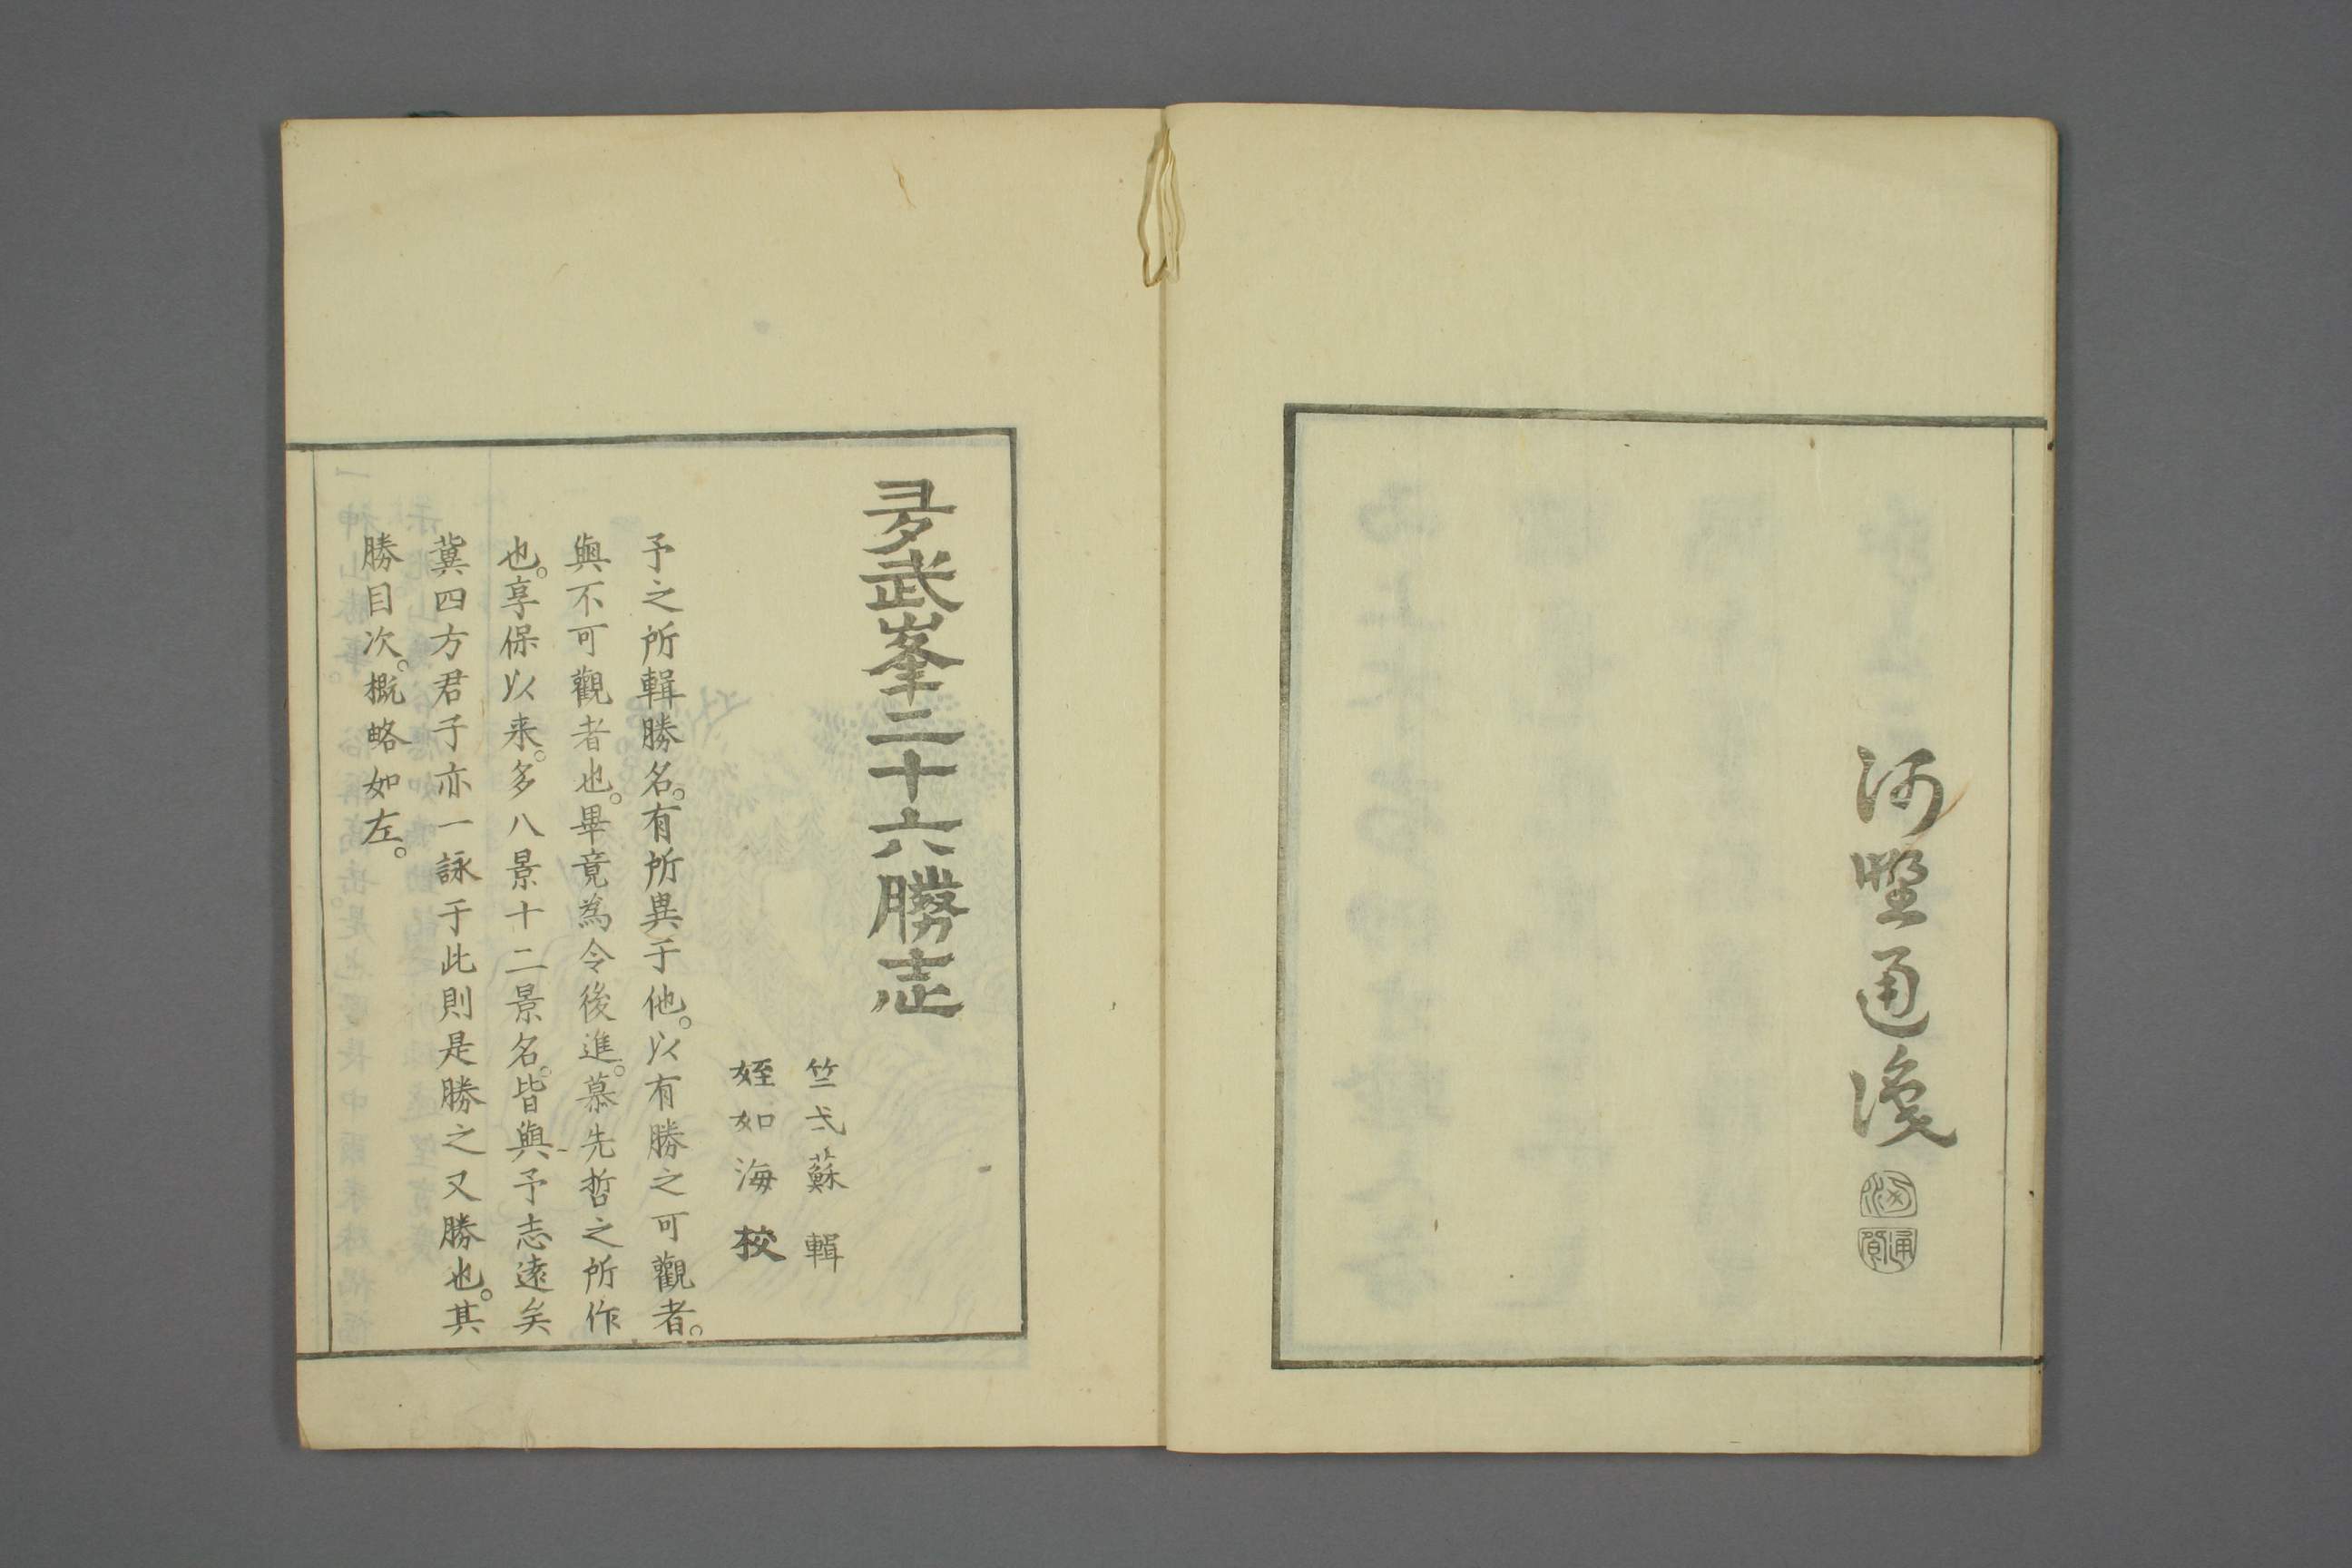 河野通浚
多武峯二十六勝志
竺弌蘇 輯
姪如海 校
予之所輯勝名。有所異于他。以有勝之可觀者。
與不可觀者也。畢竟為令後進。慕先哲之所作
也。享保以来。多八景十二景名。皆與予志遠矣
冀四方君子亦一詠于此則是勝之又勝也。其
勝目次。概略如左。